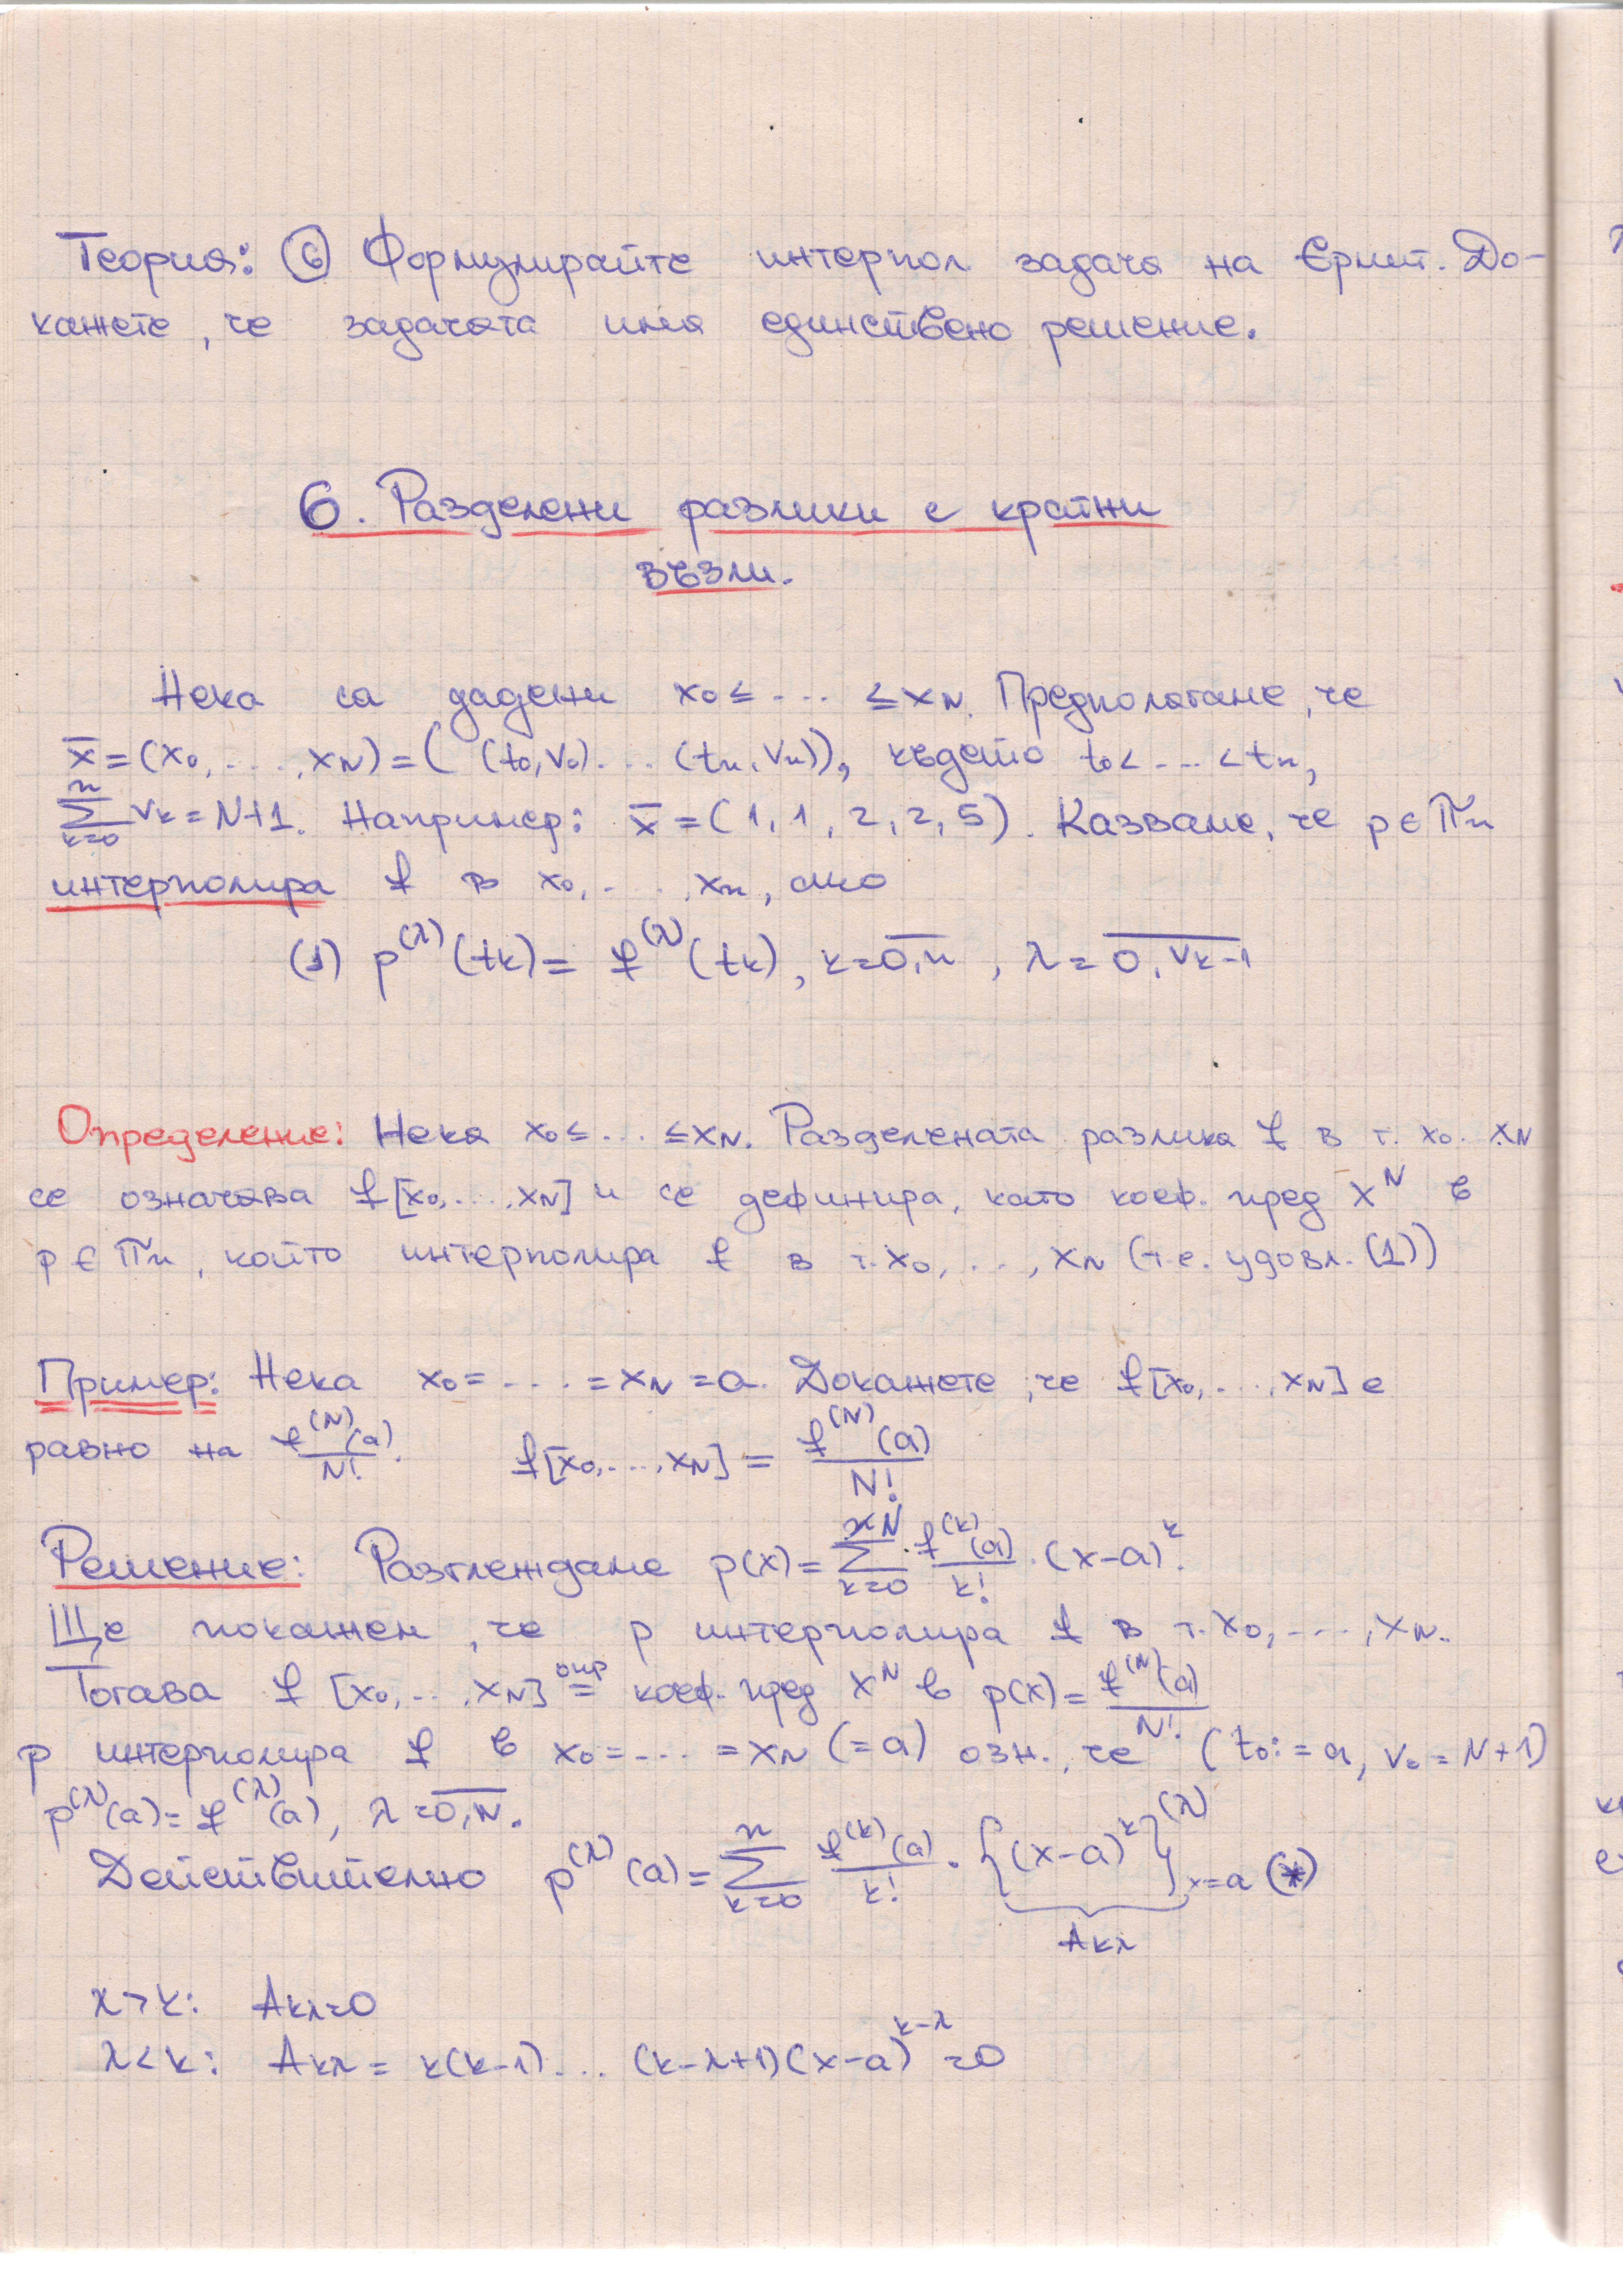 Теория: ⑥ Формулирайте интерпол задача на Ермит. До-
кажете, че задачата има единствено решение.
6. Разделени разлики с кратни
възли.
Нека са дадени x₀ ≤ ... ≤ x_N. Предполагаме, че
x̄ = (x₀, ..., x_N) = ( (t₀, ν₀) ... (t_n, ν_n)), където t₀ < ... < t_n,
∑_{k=0}^{n} ν_k = N+1. Например: x̄ = (1, 1, 2, 2, 5). Казваме, че p ∈ π_n
интерполира f в x₀, ..., x_n, ако
(1) p^{(λ)}(t_k) = f^{(λ)}(t_k), k = \overline{0,n}, λ = \overline{0, ν_k-1}
Определение: Нека x₀ ≤ ... ≤ x_N. Разделената разлика f в т. x₀...x_N
се означава f[x₀, ..., x_N] и се дефинира, като коеф. пред x^N в
p ∈ π_n, който интерполира f в т. x₀, ..., x_N (т.е. удовл. (1))
Пример: Нека x₀ = ... = x_N = a. Докажете, че f[x₀, ..., x_N] е
равно на f^{(N)}(a)/N!. f[x₀, ..., x_N] = f^{(N)}(a)/N!
Решение: Разглеждаме p(x) = ∑_{k=0}^{N} f^{(k)}(a)/k! · (x-a)^k.
Ще покажем, че p интерполира f в т. x₀, ..., x_N.
Тогава f [x₀, ..., x_N] \overset{опр}{=} коеф. пред x^N в p(x) = f^{(N)}(a)/N!
p интерполира f в x₀ = ... = x_N (=a) озн., че (t₀ := a, ν₀ = N+1)
p^{(λ)}(a) = f^{(λ)}(a), λ = \overline{0,N}.
Действително p^{(λ)}(a) = ∑_{k=0}^{n} f^{(k)}(a)/k! · \underbrace{{(x-a)^k}^{(λ)}_{x=a}}_{A_{kλ}} (*)
λ > k: A_{kλ} = 0
λ < k: A_{kλ} = k(k-1) ... (k-λ+1)(x-a)^{k-λ} = 0